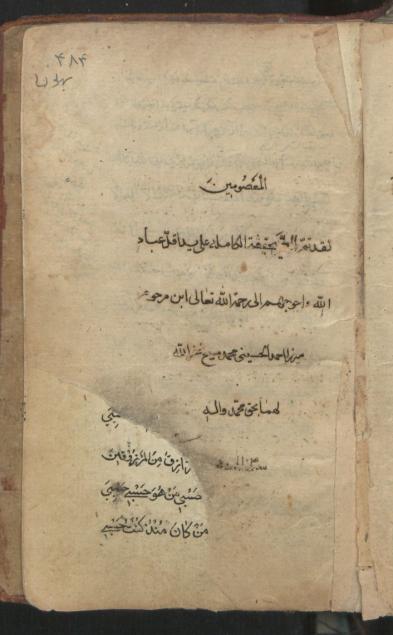 ۴۸۴
المعصومين
لقد تم الصحيفة الكاملة على يد اقل عباد
الله واحوجهم الى رحمة الله تعالى ابن مرحوم
ميرزا احمد الحسيني محمد غفر الله
لهما بحق محمد واله
رازق من المرزوقين
حسبي من هو حسبي حسبي
من كان منذ كنت حسبي